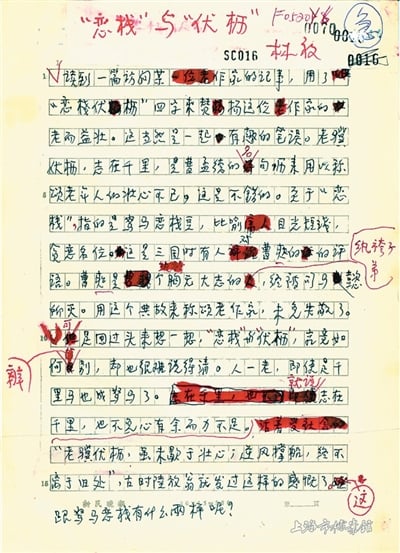 "恋栈"与"伏枥"
急
0070
SC016
林放
0016
读到一篇访问某一位老作家的记事,用了
"恋栈伏枥"四字来赞扬这位老作家的
老而益壮。这当然是一起有趣的笔误。老骥
伏枥,志在千里,是曹孟德的名句,历来用以称
颂老年人们壮心不已,这是不错的。至于"恋
栈",指的是驽马恋栈豆,比喻庸人目光短浅,
贪恋名位。这是三国时有人对曹爽的评
语。曹爽是个胸无大志的纨袴子弟,司马懿
用这个典故来称颂老作家,未免失敬了。
可是回过头来想一想,"恋栈"与"伏枥",究竟如
何辨别,却也很难说得清。人一老,即使是千
里马也成驽马了。就说志在
千里,也不免心有余而力不足。
"老骥伏枥,虽未歇于壮心;逆风撑船,终不
离于旧处",古时陆放翁就发过这样的感慨了。这
跟驽马恋栈有什么两样呢?
新民晚报
上海市档案馆